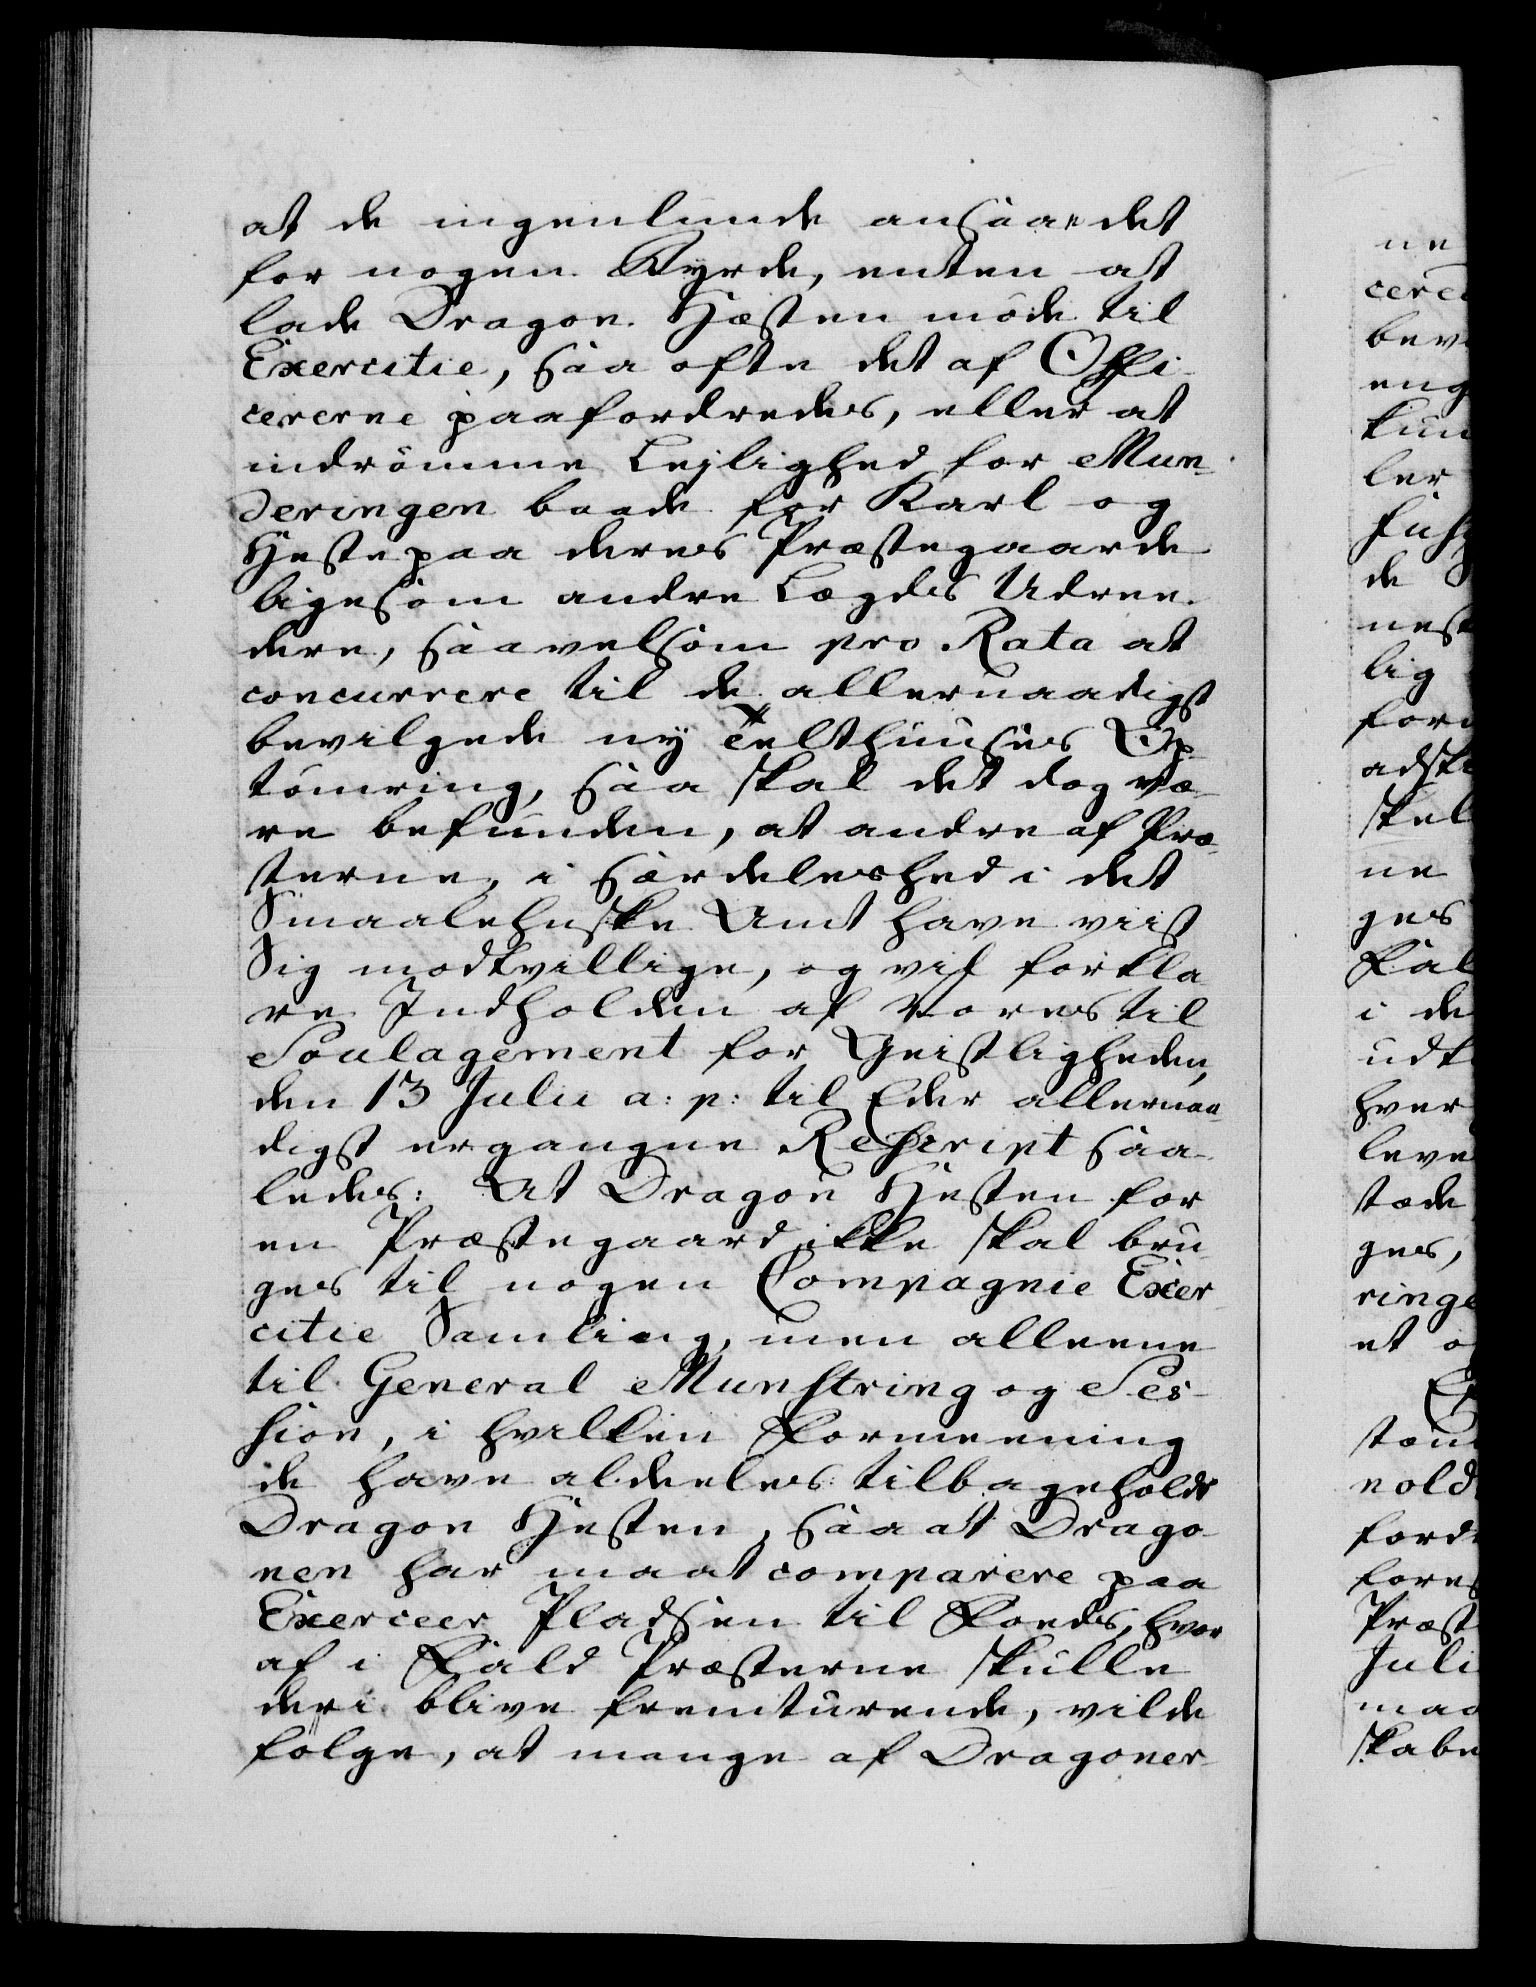 at de ingenlunde ansaae det
for nogen Byrde, enten at
lade Dragon Hæsten møde til
Exercitie, saa ofte det af Offi-
cererne paafordredes, eller at
indrømme Lejlighed for Mun-
deringen baade for Karl og
Heste paa deres Præstegaarde
ligesom andre Lægds Udree-
dere, saavelsom pro Rata at
concurrere til de allernaadigst
bevilgede ny Telthuuses Op-
tømring, saa skal det dog væ-
re befunden, at andre af Præ-
sterne, i særdeleshed i det
Smaalehnske Amt have viist
Sig modtvillige, og vil forkla-
re Indholden af Vores til
Soulagement for Geistligheden,
den 13 Julii a: p: til Eder allernaa-
digst ergangne Rescript saa-
ledes: At Dragon Hesten for
en Præstegaard ikke skal bru-
ges til nogen Compagnie Exer-
citie Samling, men alleene
til General Munstring og Ses-
sion, i hvilken Formeening
de have aldeeles tilbageholdt
Dragon Hesten, saa at Drago-
nen har maat comparere paa
Exerceer Pladsen til Foeds, hvor
af i Fald Præsterne skulle
deri blive fremturende, vilde
følge, at mange af Dragoner-
ne
cere
bev
eng
kun
ler
de
nest
lig
for
adsk
skel
ne
ges
Fal
i de
udk
hver
leve
stæde
ges,
ringe
et o
nold
ford
fores
Præst
Juli
maa
skabe